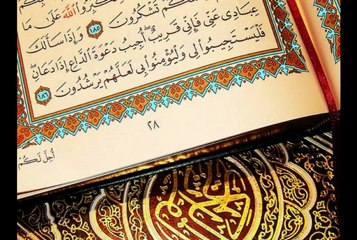 الله عَلَىٰ مَا
تَشْكُرُونَ ١٨٥ وَإِذَا سَأَلَكَ
عِبَادِى عَنِّى فَإِنِّى قَرِيبٌ أُجِيبُ دَعْوَةَ الدَّاعِ إِذَا دَعَانِ
فَلْيَسْتَجِيبُوا لِى وَلْيُؤْمِنُوا بِى لَعَلَّهُمْ يَرْشُدُونَ ١٨٦
٢٨
أُحِلَّ لَكُمْ